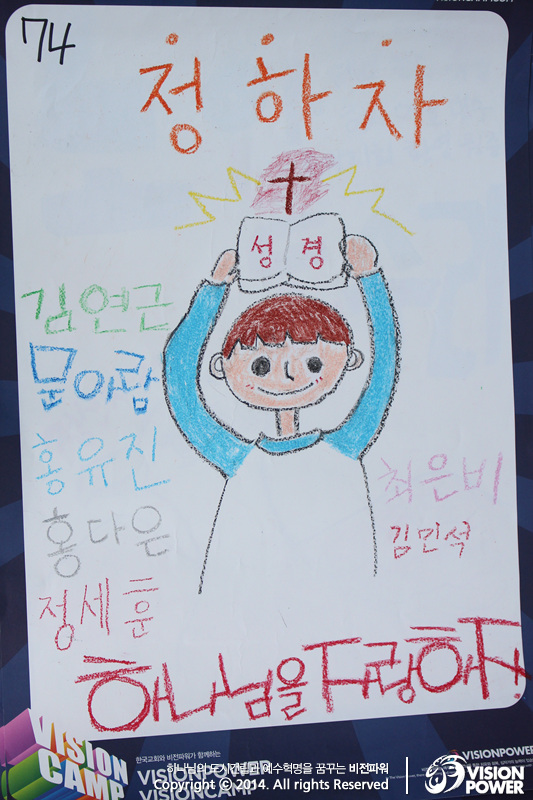 74
정하자
성경
김연근
문아람
홍유진
홍다은
정세훈
최은비
김민석
하나님을 사랑하자!
VISION CAMP
한국교회와 비전파워가 함께하는
VISIONPOWER
VISIONCAMP
VISIONPOWER
예수혁명을 꿈꾸는 비전파워
Copyright © 2014. All rights Reserved
VISION POWER